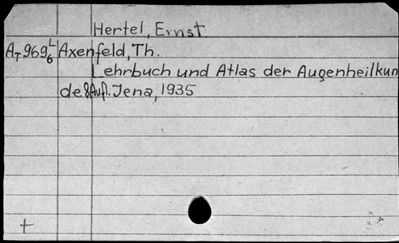 Hertel, Ernst
A_T 969 L/6 Axenfeld, Th.
Lehrbuch und Atlas der Augenheilkun
de. 8. Aufl. Jena, 1935